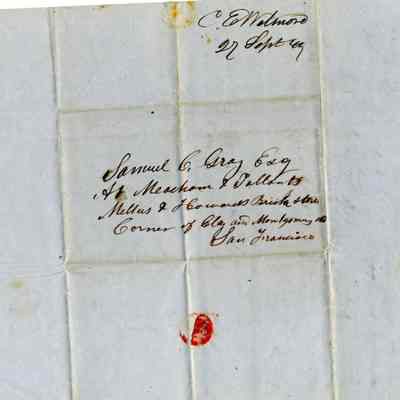 C. E. Wetmore
27 Sept 49
Samuel C. Gray Esq
At Meacham & Tallants
Mellus & Howards Brick store
Corner of Clay and Montgomery sts
San Francisco